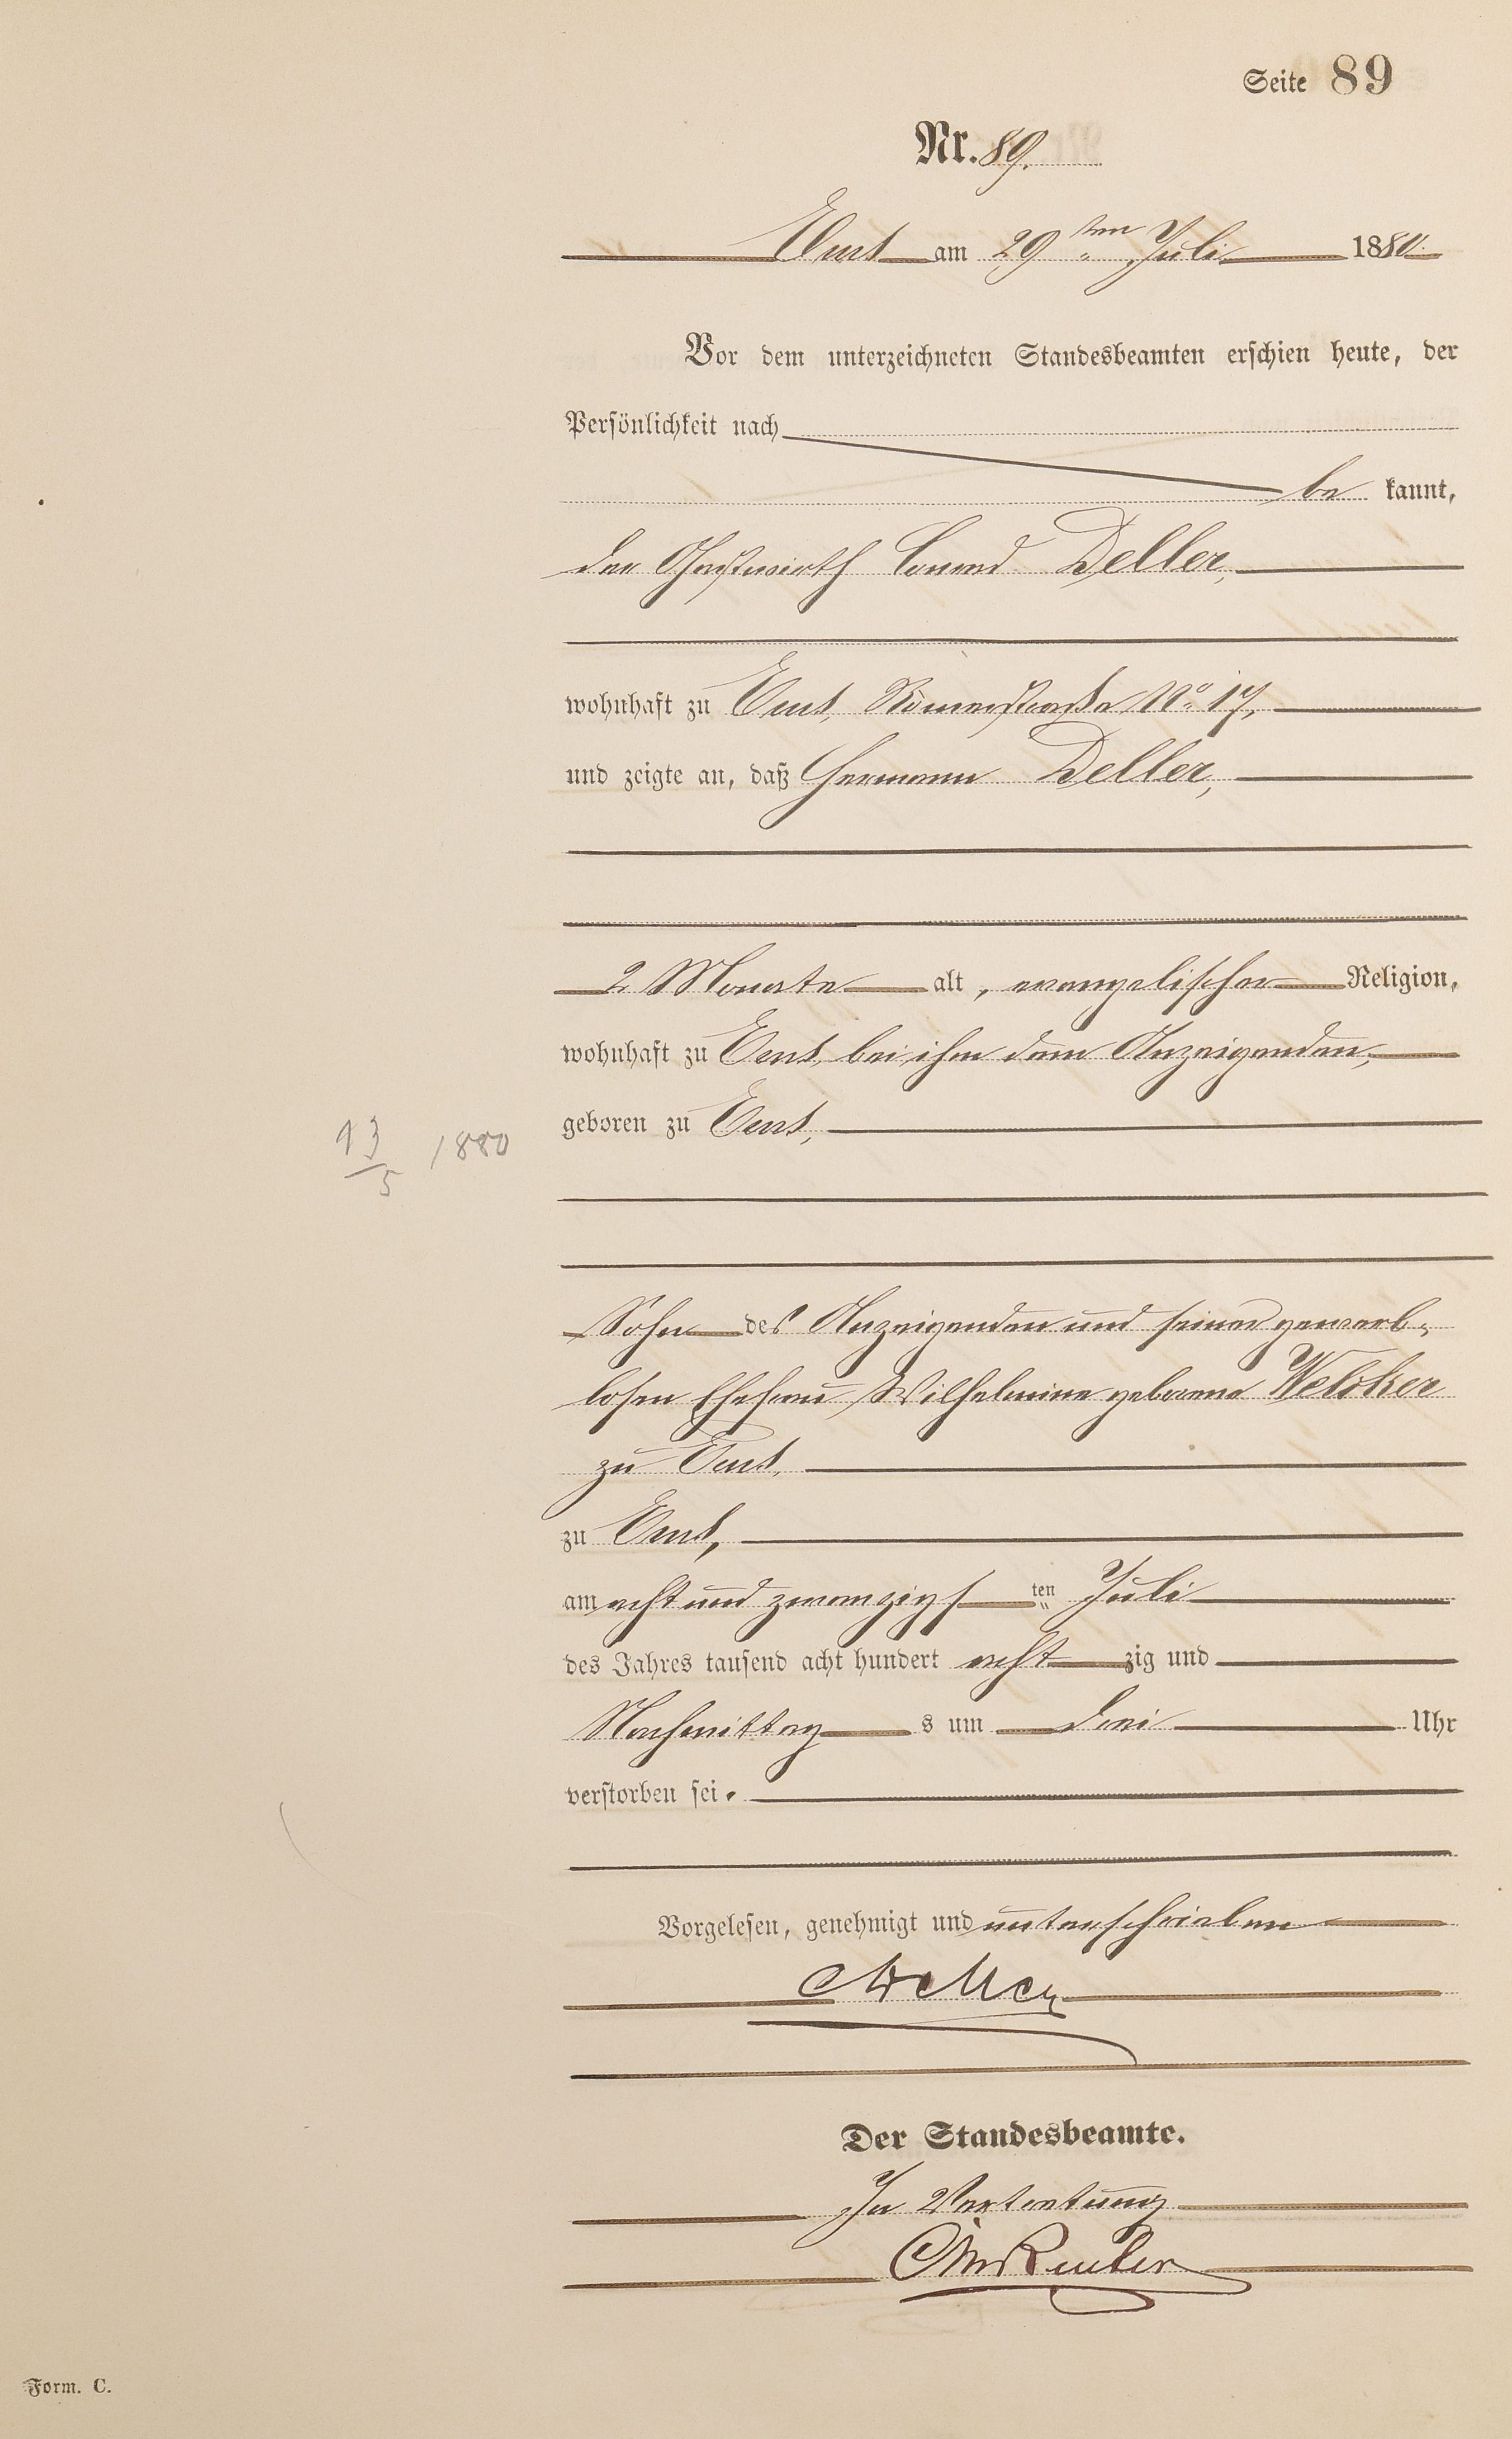 Seite 89
Nr. 89.
Ems am 29ten Juli 1880.
Vor dem unterzeichneten Standesbeamten erschien heute, der
Persönlichkeit nach
be kannt,
der Gastwirth Conrad Deller,
wohnhaft zu Ems, Römerstraße No. 17,
und zeigte an, daß Hermann Deller,
2 Monate alt, evangelischer Religion,
wohnhaft zu Ems, bei ihm dem Anzeigenden,
geboren zu Ems,
13/5 1880
Sohn des Anzeigenden und seiner gewerb-
losen Ehefrau, Wilhelmine geborene Welcker
zu Ems,
zu Ems,
am acht und zwanzigsten Juli
des Jahres tausend acht hundert acht zig und
Nachmittag s um drei Uhr
verstorben sei.
Vorgelesen, genehmigt und unterschrieben
C Deller
Der Standesbeamte.
In Vertretung
Form. C.